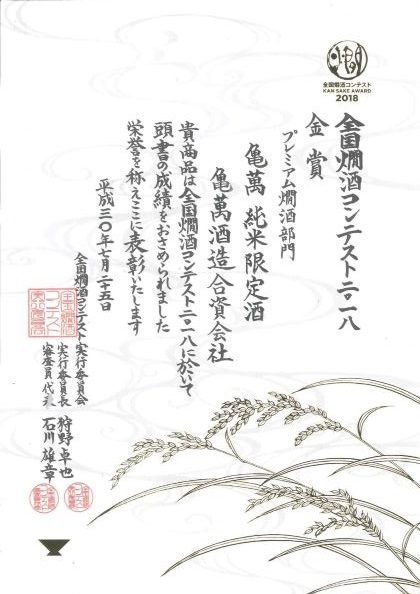 全国燗酒コンテスト
KAN SAKE AWARD
2018
全国燗酒コンテスト二〇一八
金賞
プレミアム燗酒部門
亀萬 純米限定酒
亀萬酒造合資会社
貴商品は全国燗酒コンテスト二〇一八に於いて
頭書の成績をおさめられました
栄誉を称えここに表彰いたします
平成三〇年七月二十五日
全国燗酒コンテスト実行委員会
実行委員長 狩野卓也
審査員代表 石川雄章